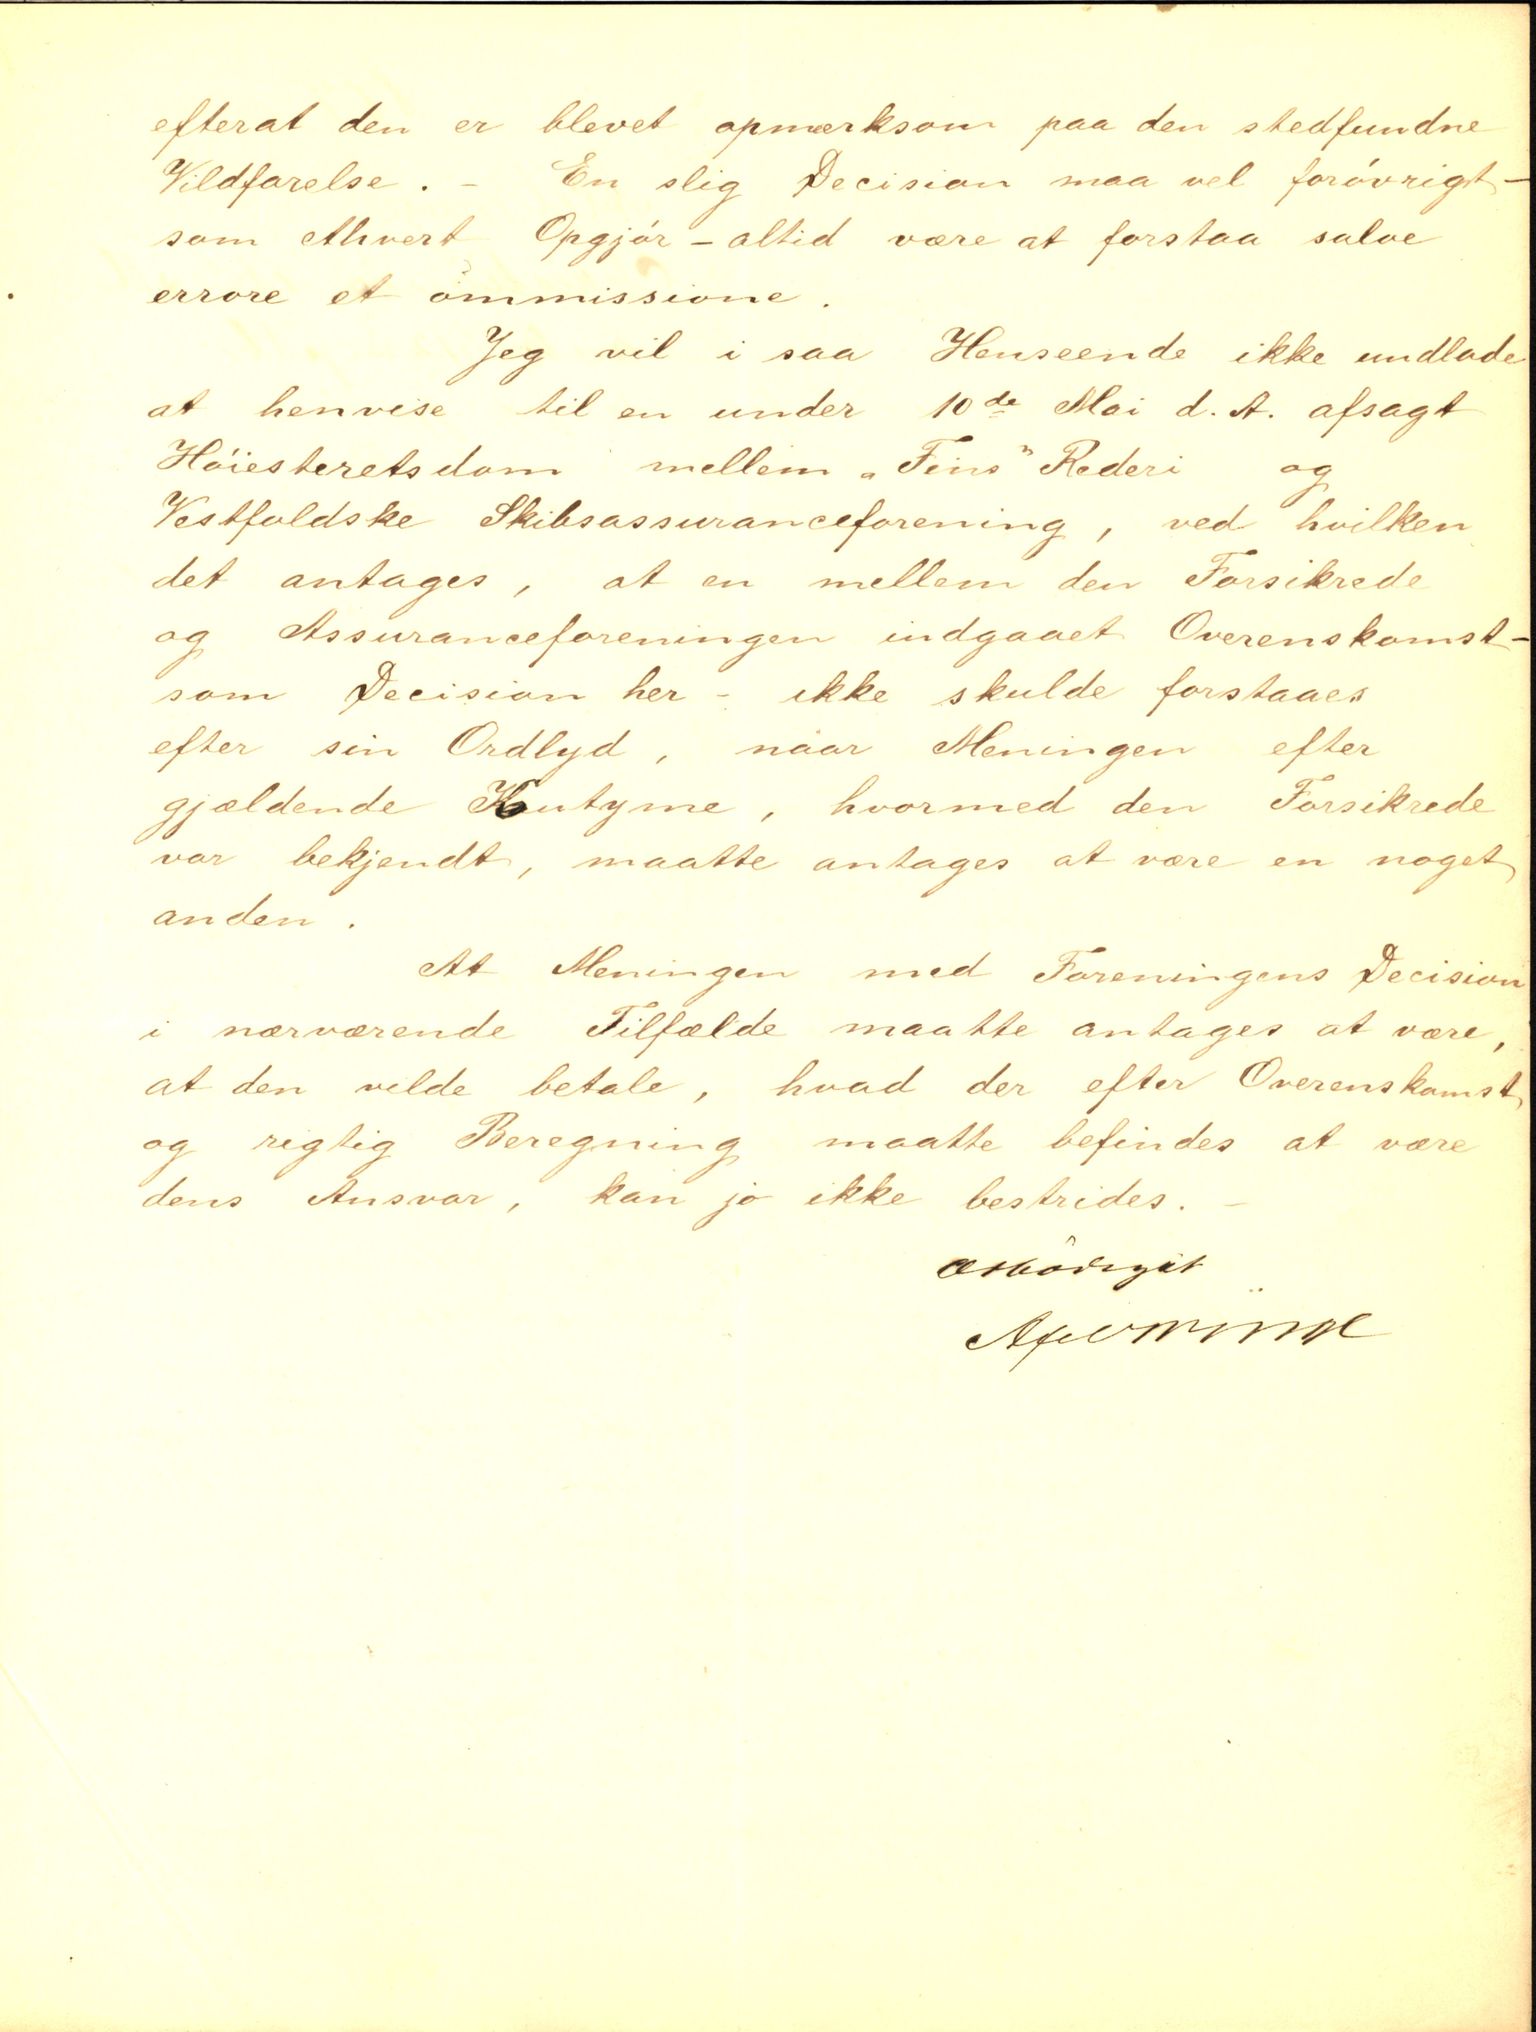 efterat den er blevet opmærksom paa den stedfundne
Vildfarelse. - En slig Decision maa vel forøvrigt -
som ethvert Opgjør - altid være at forstaa salve
errore et ommissione.
Jeg vil i saa Henseende ikke undlade
at henvise til en under 10de Mai d. A. afsagt
Høiesteretsdom mellem „Fins" Rederi og
Vestfoldske Skibsassuranceforening, ved hvilken
det antages, at en mellem den Forsikrede
og Assuranceforeningen indgaaet Overenskomst -
som Decision her - ikke skulde forstaaes
efter sin Ordlyd, naar Meningen efter
gjældende Koutyme, hvormed den Forsikrede
var bekjendt, maatte antages at være en noget
anden.
At Meningen med Foreningens Decision
i nærværende Tilfælde maatte antages at være,
at den vilde betale, hvad der efter Overenskomst
og rigtig Beregning maatte befindes at være
dens Ansvar, kan jo ikke bestrides. -
ærbødigst